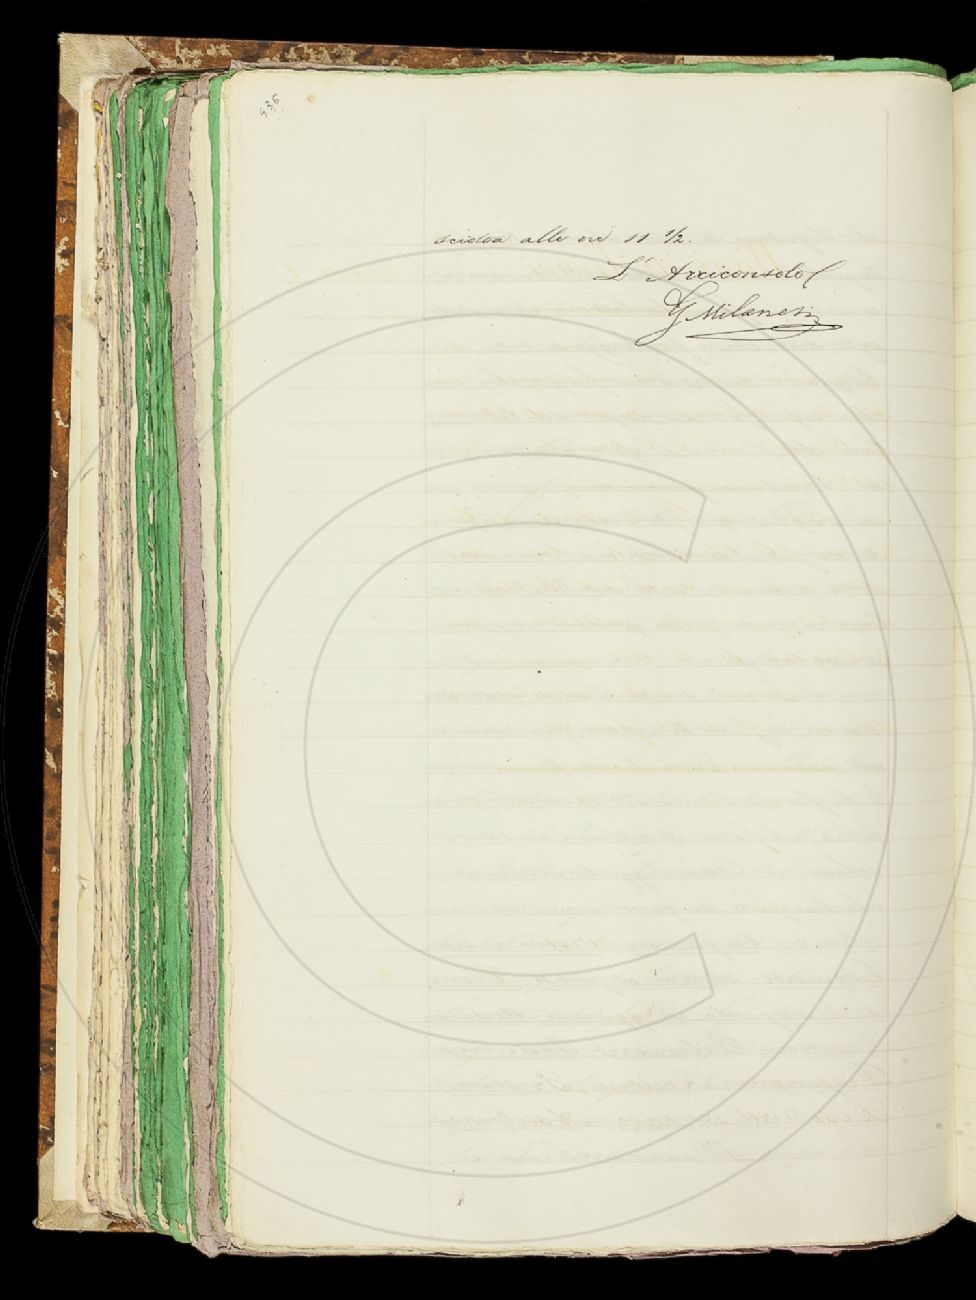 536
sciolta alle ore 11 1/2.
L'Arciconsolo
G Milanesi